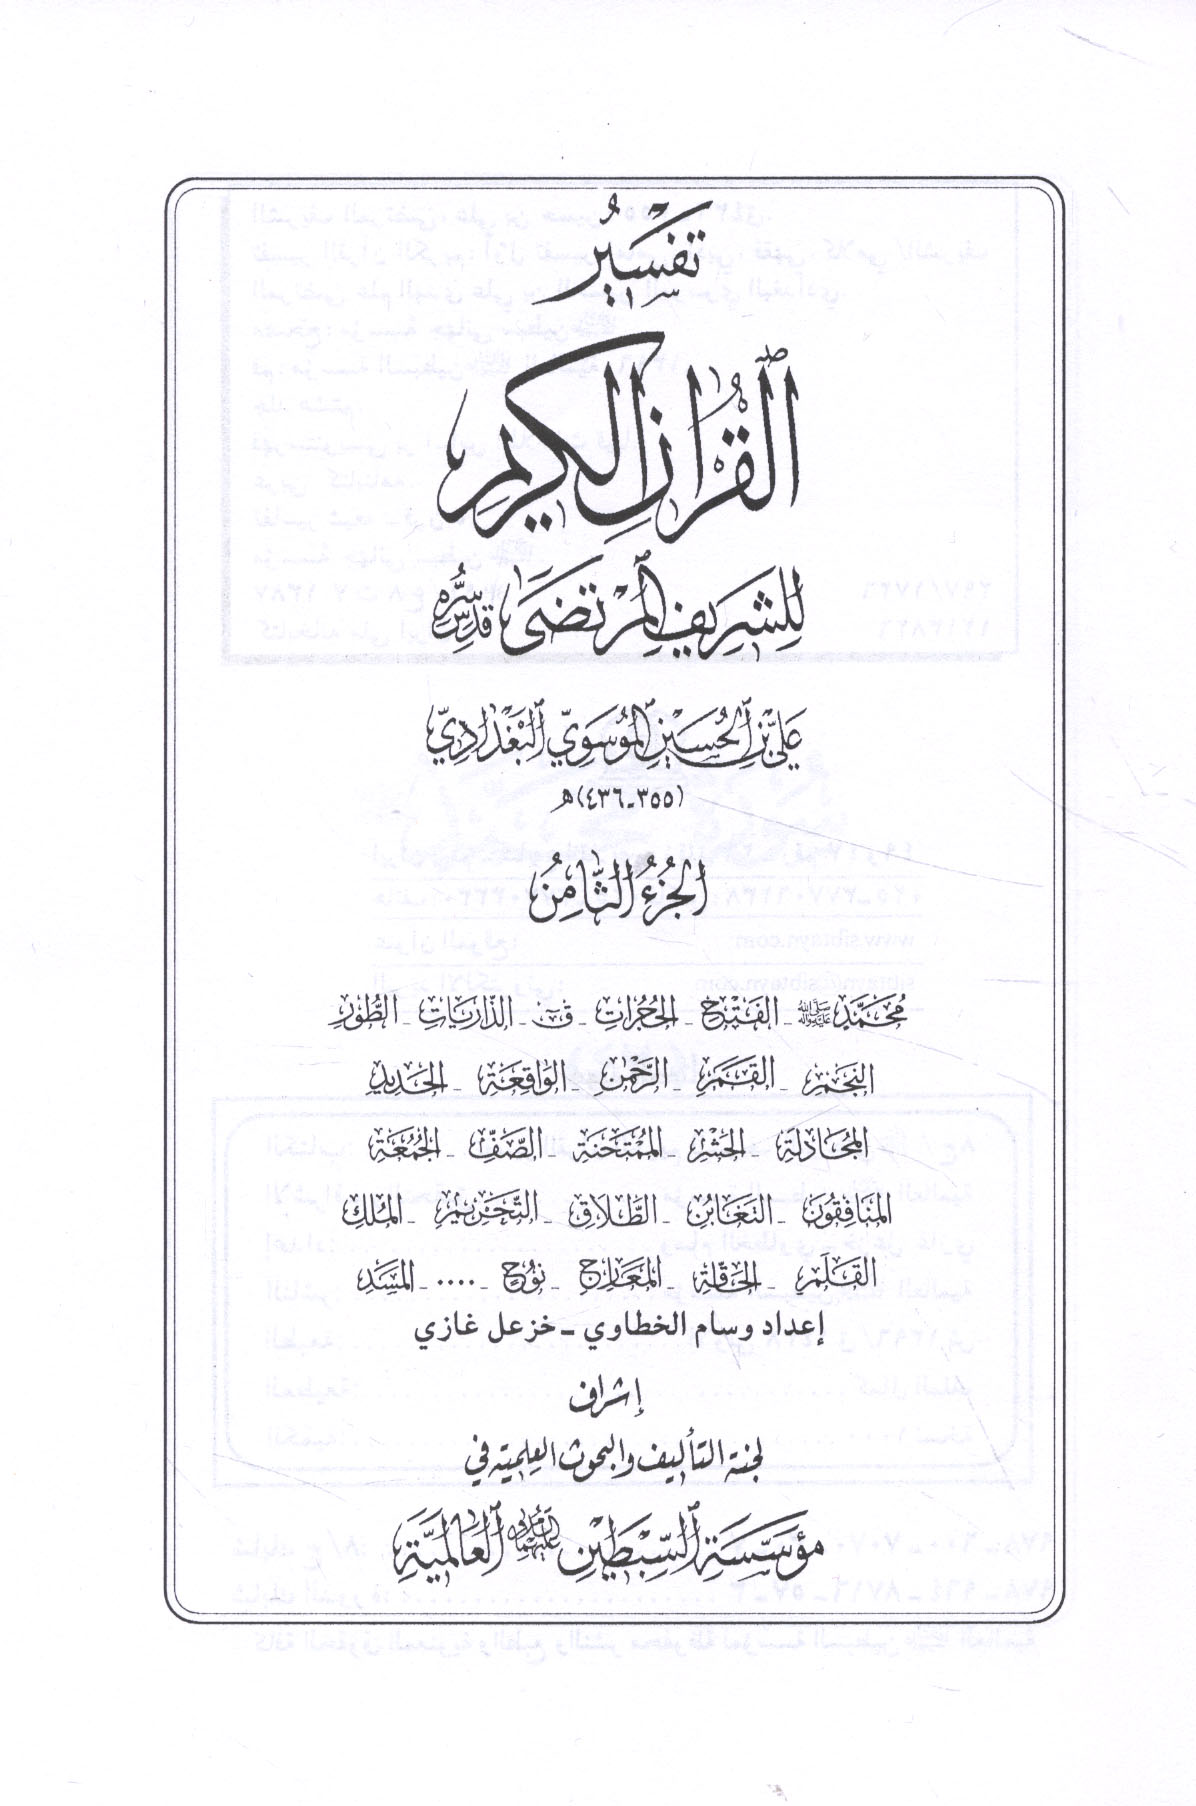 تفسير
القرآن الكريم
للشريف المرتضى قدس سره
علي بن الحسين الموسوي البغدادي
(٣٥٥-٤٣٦)هـ
الجزء الثامن
محمد ﷺ - الفتح - الحجرات - ق - الذاريات - الطور
النجم - القمر - الرحمن - الواقعة - الحديد
المجادلة - الحشر - الممتحنة - الصف - الجمعة
المنافقون - التغابن - الطلاق - التحريم - الملك
القلم - الحاقة - المعارج - نوح - .... - المسد
إعداد وسام الخطاوي - خزعل غازي
إشراف
لجنة التأليف والبحوث العلمية في
مؤسسة السبطين عليهما السلام العالمية